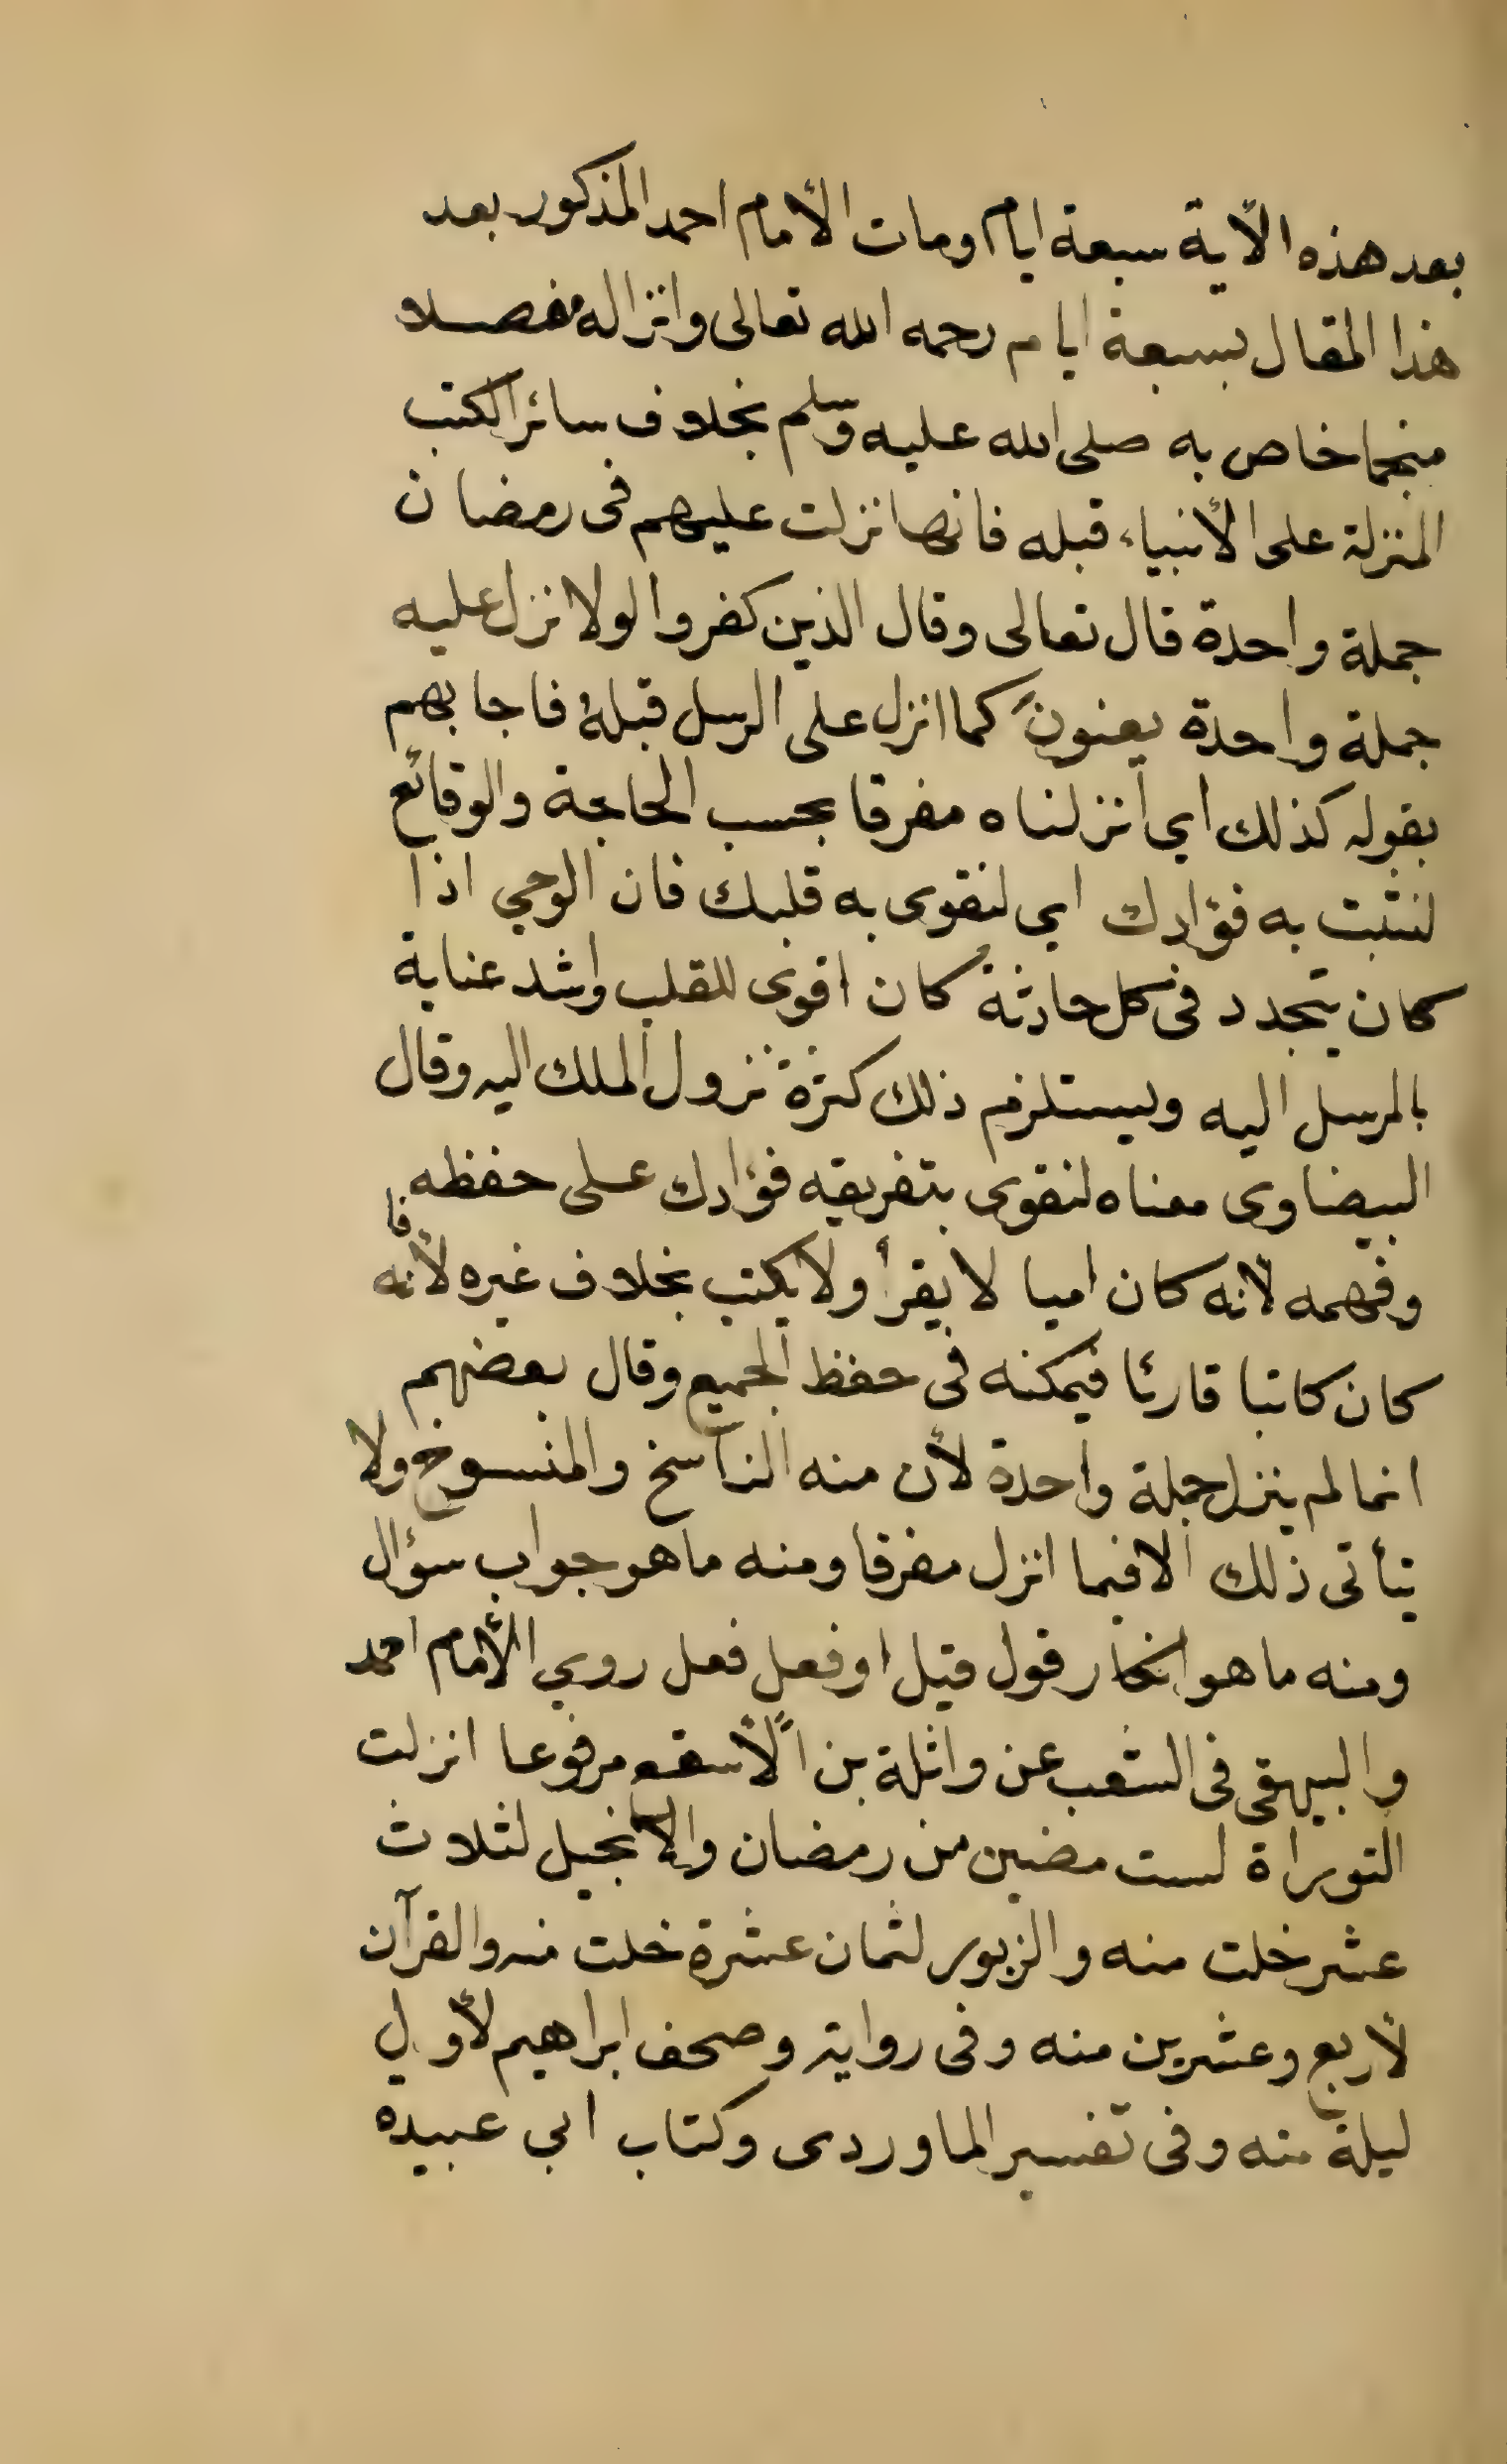 بعد هذه الأية سبعة ايام ومات الأمام احمد المذكور بعد
هذا المقال بسبعة ايام رحمه الله تعالى وانزاله مفصلا
منجما خاص به صلى الله عليه وسلم بخلاف سائر الكتب
المنزلة على الأنبياء قبله فانها نزلت عليهم فى رمضان
جملة واحدة قال تعالى وقال الذين كفروا لولا نزل عليه
جملة واحدة يعنون كما انزل على الرسل قبله فاجابهم
بقوله كذلك اي انزلناه مفرقا بحسب الحاجة والوقائع
لنثبت به فؤادك اي لنقوى به قلبك فان الوحي اذا
كان يتجدد فى كل حادثة كان اقوى للقلب واشد عناية
بالمرسل اليه ويستلزم ذلك كثرة نزول الملك اليه وقال
البيضاوى معناه لنقوى بتفريقه فؤادك على حفظه
وفهمه لأنه كان اميا لا يقرأ ولا يكتب بخلاف غيره فأنه
كان كاتبا قارئا فيمكنه فى حفظ الجميع وقال بعضهم
انما لم ينزل جملة واحدة لأن منه الناسخ والمنسوخ ولا
يتأتى ذلك الا فيما انزل مفرقا ومنه ما هو جواب سؤال
ومنه ما هو انكار قول قيل او فعل فعل روي الأمام احمد
والبيهقي فى الشعب عن واثلة بن الأسقع مرفوعا انزلت
التوراة لست مضين من رمضان والانجيل لثلاث
عشر خلت منه والزبور لثمان عشرة خلت منه والقرآن
لأربع وعشرين منه وفى رواية وصحف ابراهيم لأول
ليلة منه وفى تفسير الماوردى وكتاب ابي عبيده